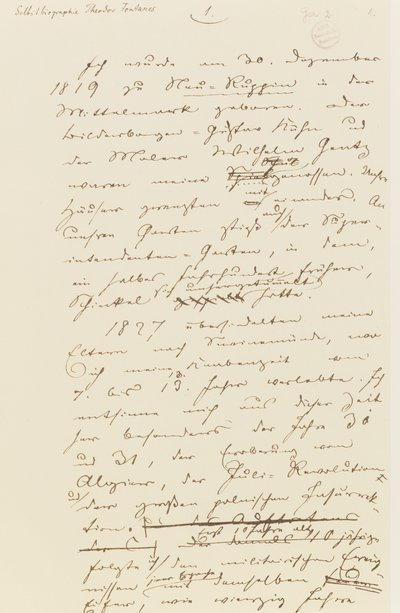 Selbstbiographie Theodor Fontanes
1.
Ich wurde am 30. Dezember
1819 zu Neu-Ruppin in der
Mittelmark geboren. Der
Bilderbogen-Gustav Kühn und
der Maler Wilhelm Gentz
waren meine Schulgenossen. Unsre
Häuser grenzten mit einander. An
unsren Garten stieß auch der Super-
intendenten-Garten, in dem,
ein halbes Jahrhundert früher,
Schinkel sich umhergetummelt hatte.
1827 übersiedelten meine
Eltern nach Swinemünde, wo
ich meine Knabenzeit vom
7. bis 13. Jahre verlebte. Ich
entsinne mich aus dieser Zeit
her besonders der Jahre 30
und 31, der Eroberung von
Algier, der Juli-Revolution
und der großen polnischen Insurrek-
tion. erst 10 Jahre alt,
folgte ich den militairischen Ereig-
nissen mit demselben
Eifer, wie vierzig Jahre